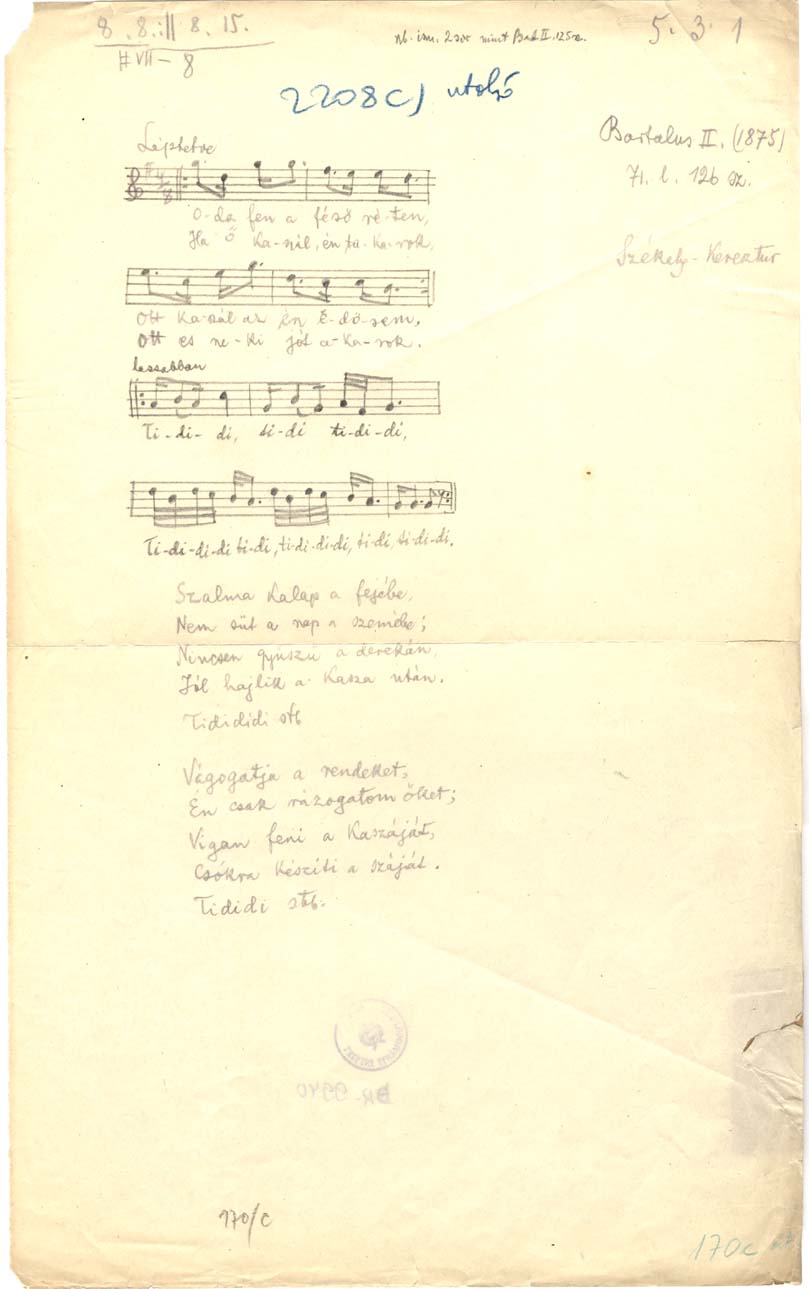 8. 8. :|| 8. 15.
# VII – 8
nb. ism. 2 sor mint Bart. II. 125 sz.
5. 3. 1
2208c) utolsó
Bartalus II. (1875)
71. l. 126 sz.
Székely-Keresztúr
Léptetve
O-da fen a féső ré-ten,
Ha ő ka-szál, én ta-ka-rok,
Ott ka-szál az én é-dö-sem,
Ott es ne-ki jót a-ka-rok.
lassabban
Ti-di-di, ti-di ti-di-di,
Ti-di-di-di ti-di, ti-di-di-di, ti-di, ti-di-di.
Szalma kalap a fejébe,
Nem süt a nap a szemébe;
Nincsen gyűszű a derekán,
Jól hajlik a kasza után.
Tidididi stb
Vágogatja a rendeket,
Én csak rázogatom őket;
Vigan feni a kaszáját,
Csókra készíti a száját.
Tididi stb.
BR-9940
170/c
170c